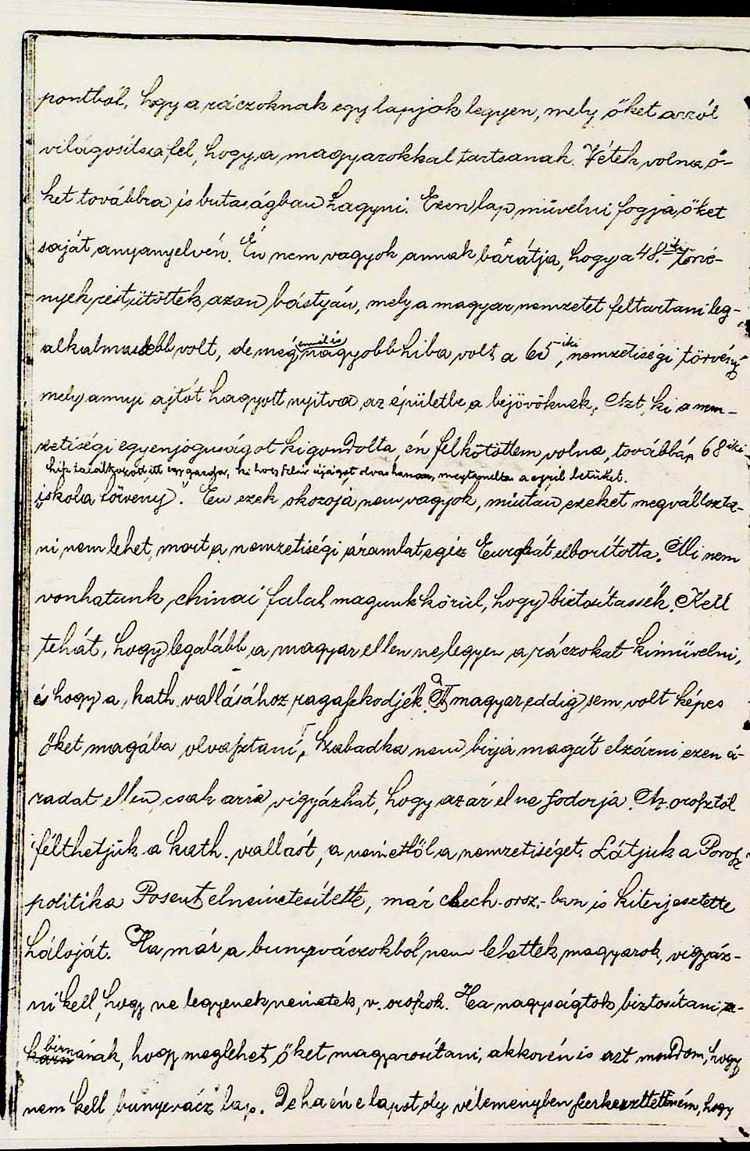 pontból, hogy a ráczoknak egy lapjok legyen, mely őket arról
világosítsa fel, hogy a magyarokkal tartsanak. Vétek volna ő-
ket továbbra is butaságban hagyni. Ezen lap művelni fogja őket
saját anyanyelvén. Én nem vagyok annak bárátja, hogy a 48iki törvé-
nyek rést ütöttek azon bástyán, mely a magyar nemzetet feltartani leg-
alkalmasabb volt, de még ennél is nagyobb hiba volt a 65-iki nemzetiségi törvény
mely annyi ajtót hagyott nyitva az épületbe a bejövöknek. Azt, ki a nem-
zetiségi egyenjoguságot kigondolta, én felkötöttem volna, továbbá, 68iki
ki hogy újságot megtanulta a betüket.
iskola törvény. Én ezek okozója nem vagyok, miután ezeket megváltozta-
ni nem lehet, mert a nemzetiségi áramlat egész Európát elborította. Mi nem
vonhatunk chinai falat magunk körül, hogy biztosítassék. Kell
tehát, hogy legalább a magyar ellen ne legyen a ráczokat kimüvelni,
és hogy a kath. vallásához ragaszkodjék. A magyar eddig sem volt képes
őket magába olvasztani, Szabadka nem birja magát elzárni ezen á-
radat ellen, csak arra vigyázhat, hogy az ár el ne sodorja. Az orosztól
félthetjük a kath. vallást, a némettől a nemzetiséget. Látjuk a Porosz
politika Posent elnémetesítette, már chech-orsz.-ban is kiterjesztette
hálóját. Ha már a bunyevaczokból nem lehettek magyarok, vigyáz-
ni kell, hogy ne legyenek németek, v. oroszok. Ha nagyságtok biztosítani
birnának, hogy meglehet őket magyarosítani, akkor én is azt mondom, hogy
nem kell bunyevácz lap. De ha én e lapot oly véleményben szerkesztetném, hogy